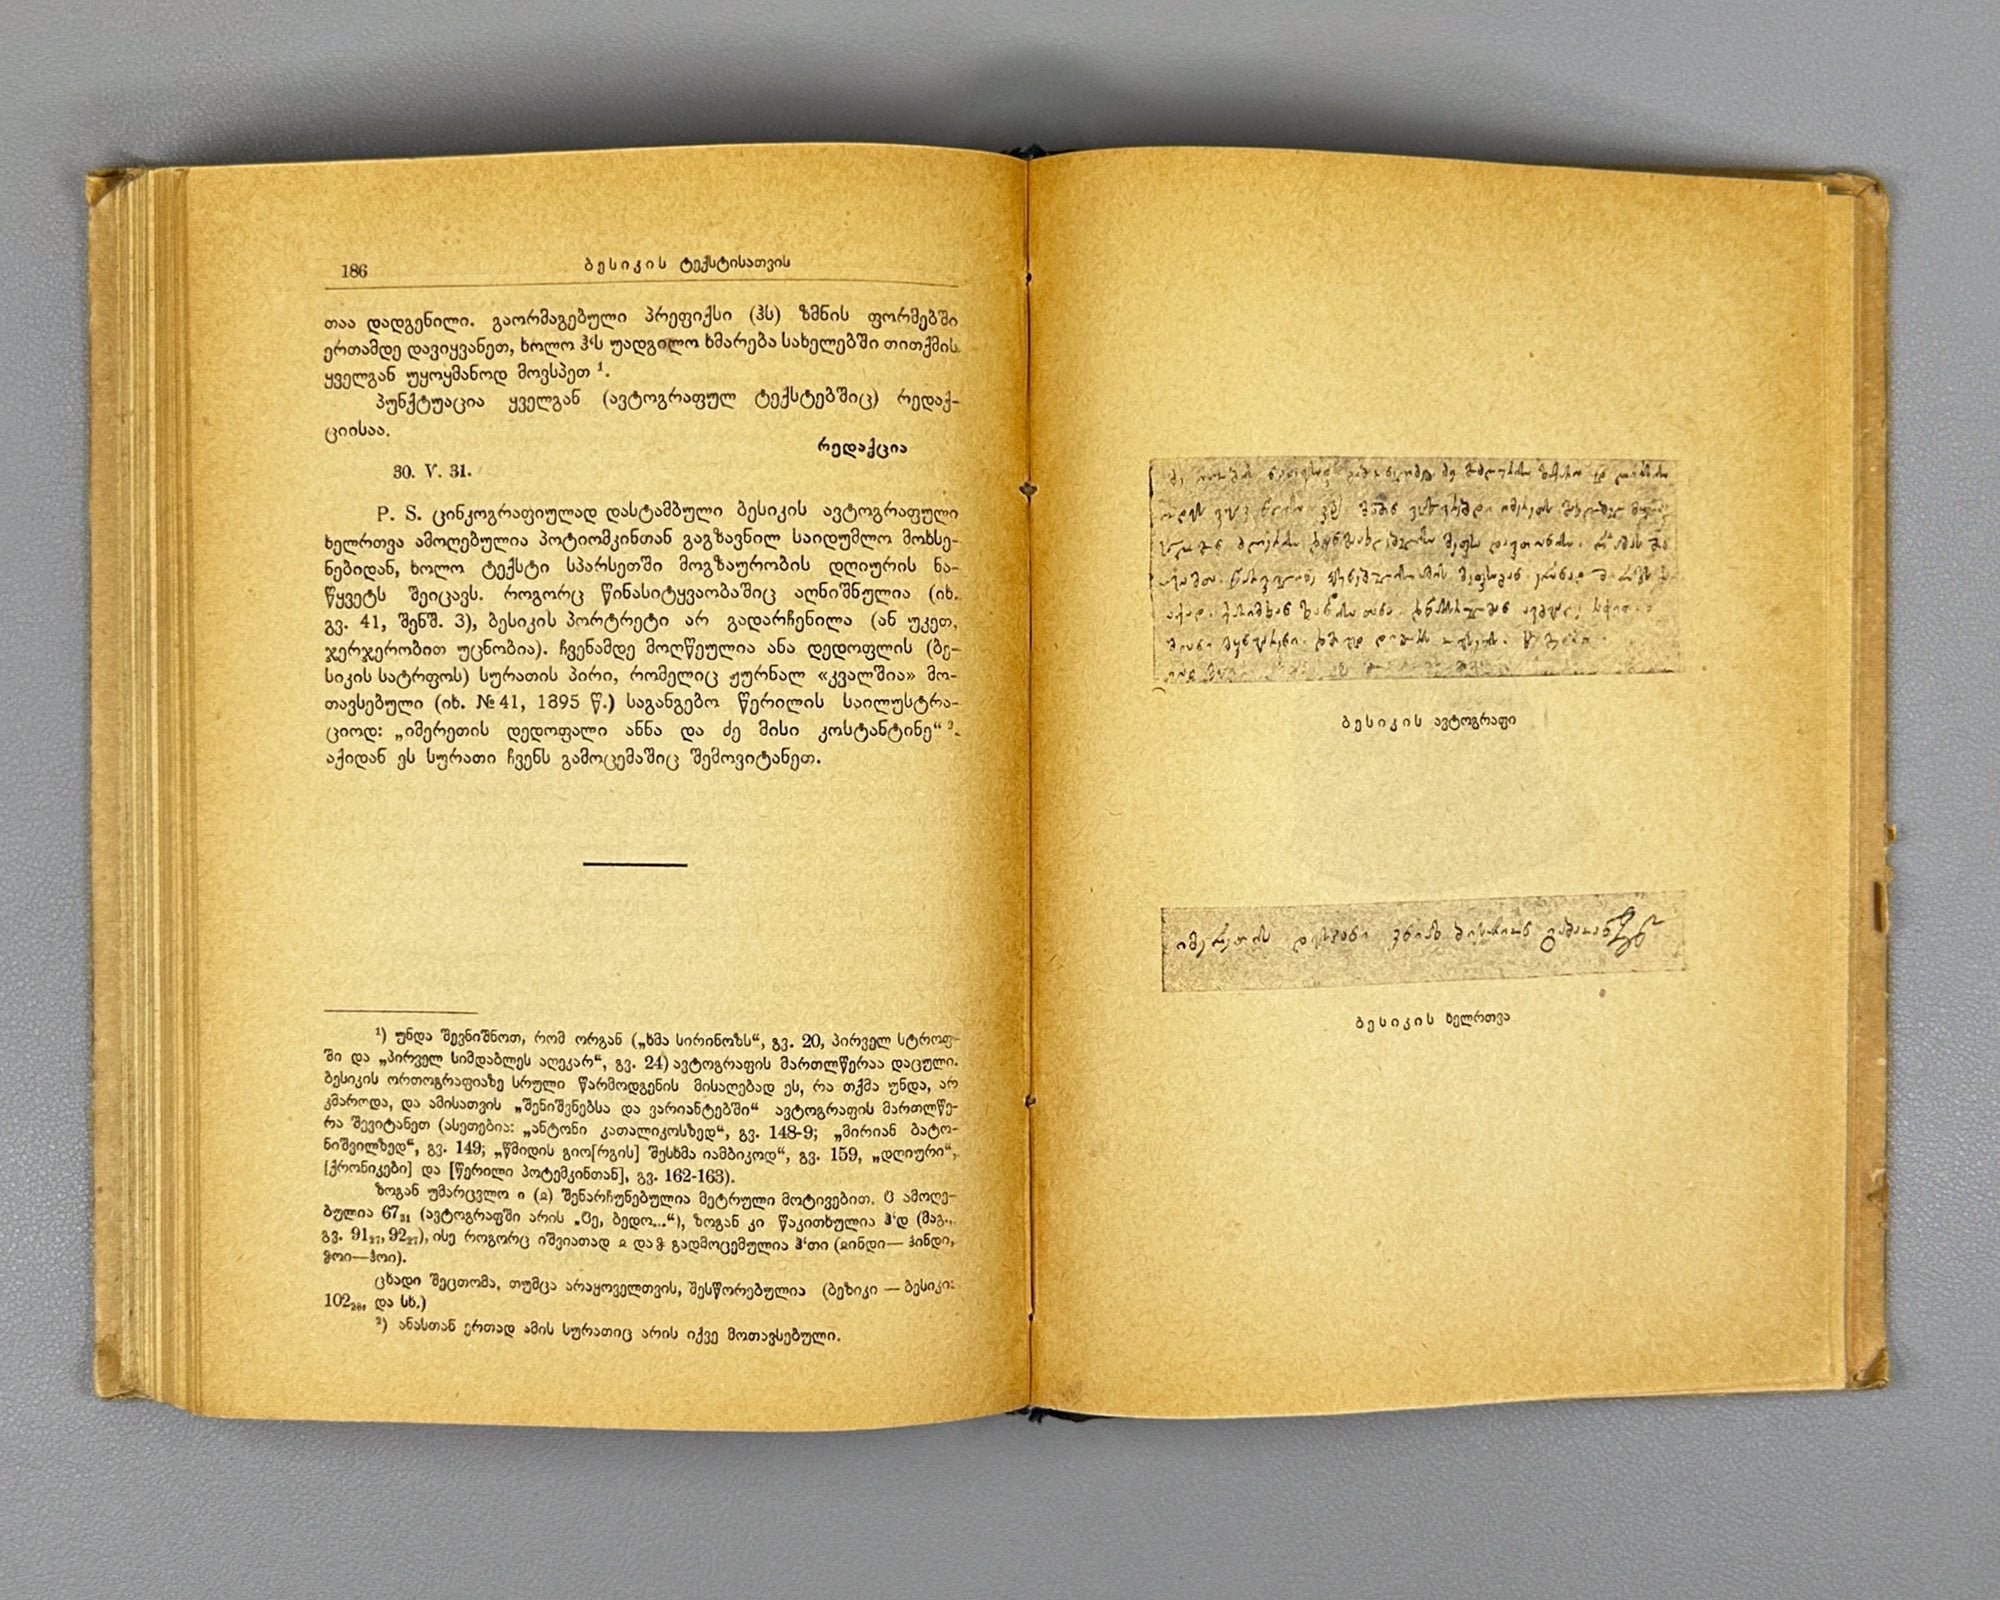 186
ბესიკის ტექსტისათვის
თაა დადგენილი. გაორმაგებული პრეფიქსი (ჰს) ზმნის ფორმებში
ერთამდე დავიყვანეთ, ხოლო ჰ‘ს უადგილო ხმარება სახელებში თითქმის
ყველგან უყოყმანოდ მოვსპეთ ¹.
პუნქტუაცია ყველგან (ავტოგრაფულ ტექსტებშიც) რედაქ-
ციისაა.
რედაქცია
30. V. 31.
P. S. ცინკოგრაფიულად დასტამბული ბესიკის ავტოგრაფული
ხელრთვა ამოღებულია პოტიომკინთან გაგზავნილ საიდუმლო მოხსე-
ნებიდან, ხოლო ტექსტი სპარსეთში მოგზაურობის დღიურის ნა-
წყვეტს შეიცავს. როგორც წინასიტყვაობაშიც აღნიშნულია (იხ.
გვ. 41, შენშ. 3), ბესიკის პორტრეტი არ გადარჩენილა (ან უკეთ,
ჯერჯერობით უცნობია). ჩვენამდე მოღწეულია ანა დედოფლის (ბე-
სიკის სატრფოს) სურათის პირი, რომელიც ჟურნალ «კვალშია» მო-
თავსებული (იხ. № 41, 1895 წ.) საგანგებო წერილის საილუსტრა-
ციოდ: „იმერეთის დედოფალი ანნა და ძე მისი კოსტანტინე“ ².
აქიდან ეს სურათი ჩვენს გამოცემაშიც შემოვიტანეთ.
¹) უნდა შევნიშნოთ, რომ ორგან („ხმა სირინოზს“, გვ. 20, პირველ სტროფ-
ში და „პირველ სიმდაბლეს აღეკარ“, გვ. 24) ავტოგრაფის მართლწერაა დაცული.
ბესიკის ორთოგრაფიაზე სრული წარმოდგენის მისაღებად ეს, რა თქმა უნდა, არ
კმაროდა, და ამისათვის „შენიშვნებსა და ვარიანტებში“ ავტოგრაფის მართლწე-
რა შევიტანეთ (ასეთებია: „ანტონი კათალიკოსზედ“, გვ. 148-9; „მირიან ბატო-
ნიშვილზედ“, გვ. 149; „წმიდის გიო[რგის] შესხმა იამბიკოდ“, გვ. 159, „დღიური“,
[ქრონიკები] და [წერილი პოტემკინთან], გვ. 162-163).
ზოგან უმარცვლო ი (ჲ) შენარჩუნებულია მეტრული მოტივებით. ჵ ამოღე-
ბულია 67₃₁ (ავტოგრაფში არის „ჵე, ბედო...“), ზოგან კი წაკითხულია ჰ‘დ (მაგ.,
გვ. 91₂₇, 92₂₇), ისე როგორც იშვიათად ჲ და ჴ გადმოცემულია ჰ‘თი (ჲინდი— ჰინდი,
ჴოი—ჰოი).
ცხადი შეცთომა, თუმცა არაყოველთვის, შესწორებულია (ბეზიკი — ბესიკი:
102₂₈, და სხ.)
²) ანასთან ერთად ამის სურათიც არის იქვე მოთავსებული.
ბესიკის ავტოგრაფი
იმერეთის დესპანი
ბესიკის ხელრთვა